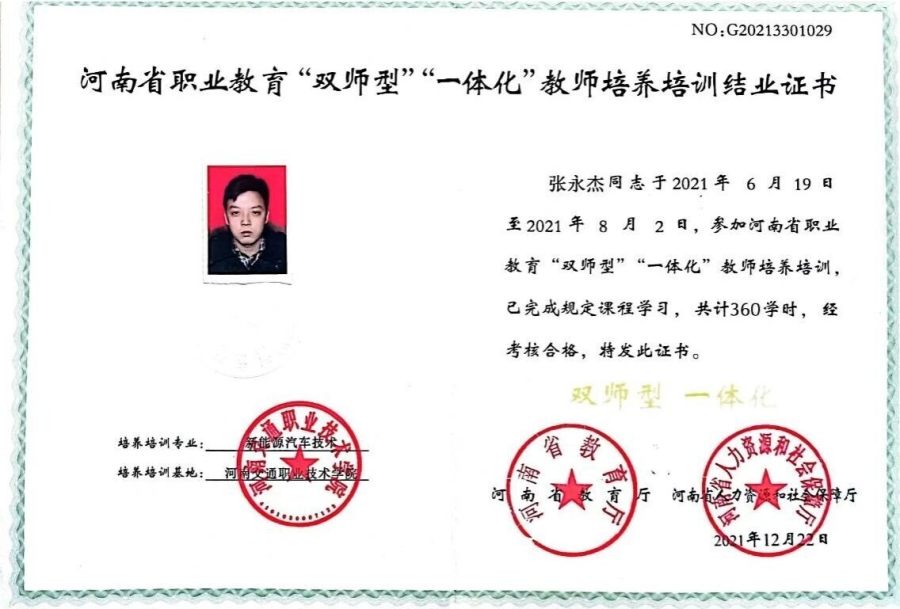 NO:G20213301029
河南省职业教育“双师型”“一体化”教师培养培训结业证书
张永杰同志于2021年 6 月 19 日
至2021年 8 月 2 日，参加河南省职业
教育“双师型”“一体化”教师培养培训，
已完成规定课程学习，共计360学时，经
考核合格，特发此证书。
双师型 一体化
培养培训专业：新能源汽车技术
培养培训基地：河南交通职业技术学院
河南交通职业技术学院
河南省教育厅
河南省教育厅
河南省人力资源和社会保障厅
河南省人力资源和社会保障厅
2021年12月22日